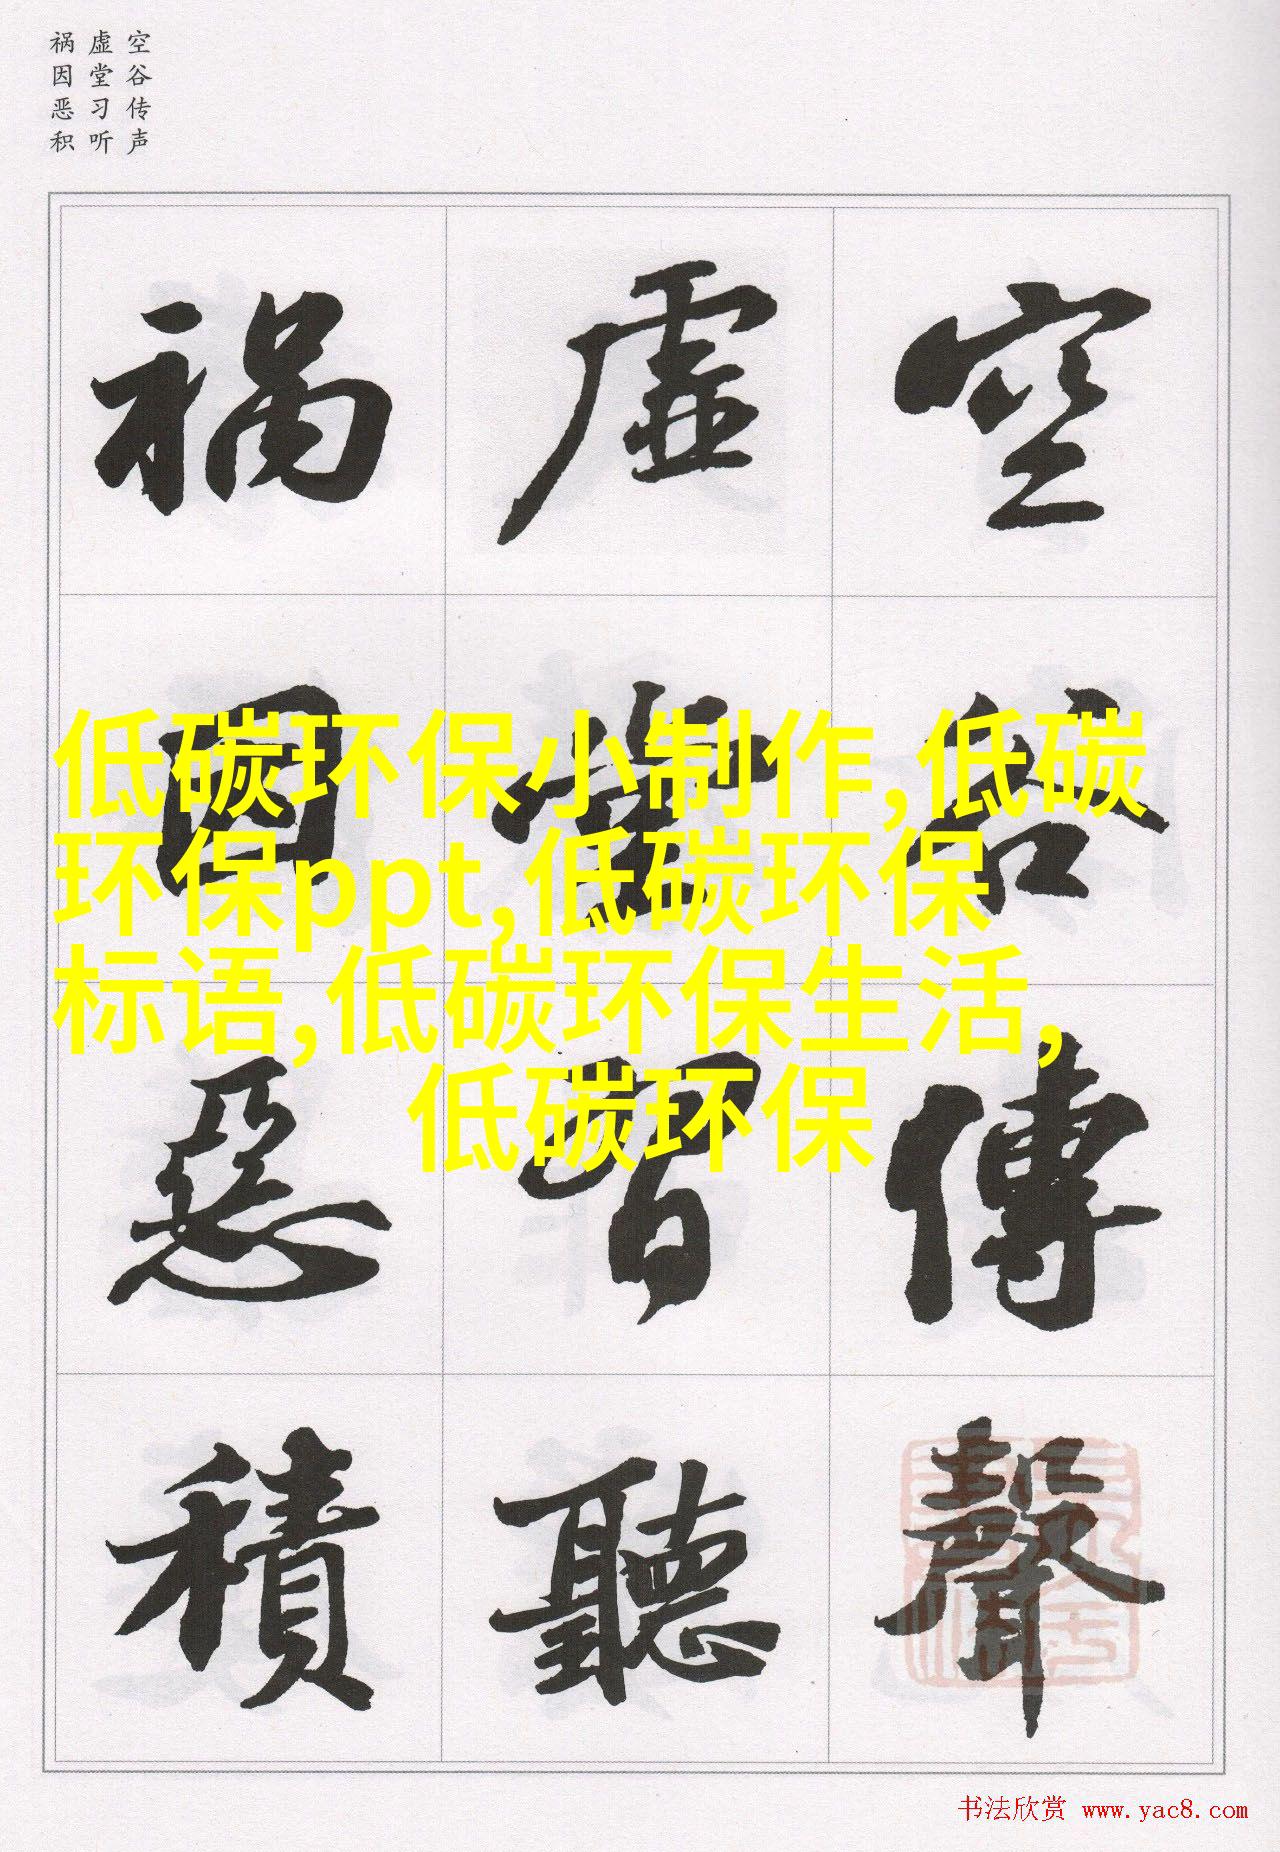 空谷传声
虚堂习听
祸因恶积
空谷傳聲
虚堂習聽
禍因惡積
低碳环保小制作,低碳
环保ppt,低碳环保
标语,低碳环保生活,
低碳环保
书法欣赏 www.yac8.com